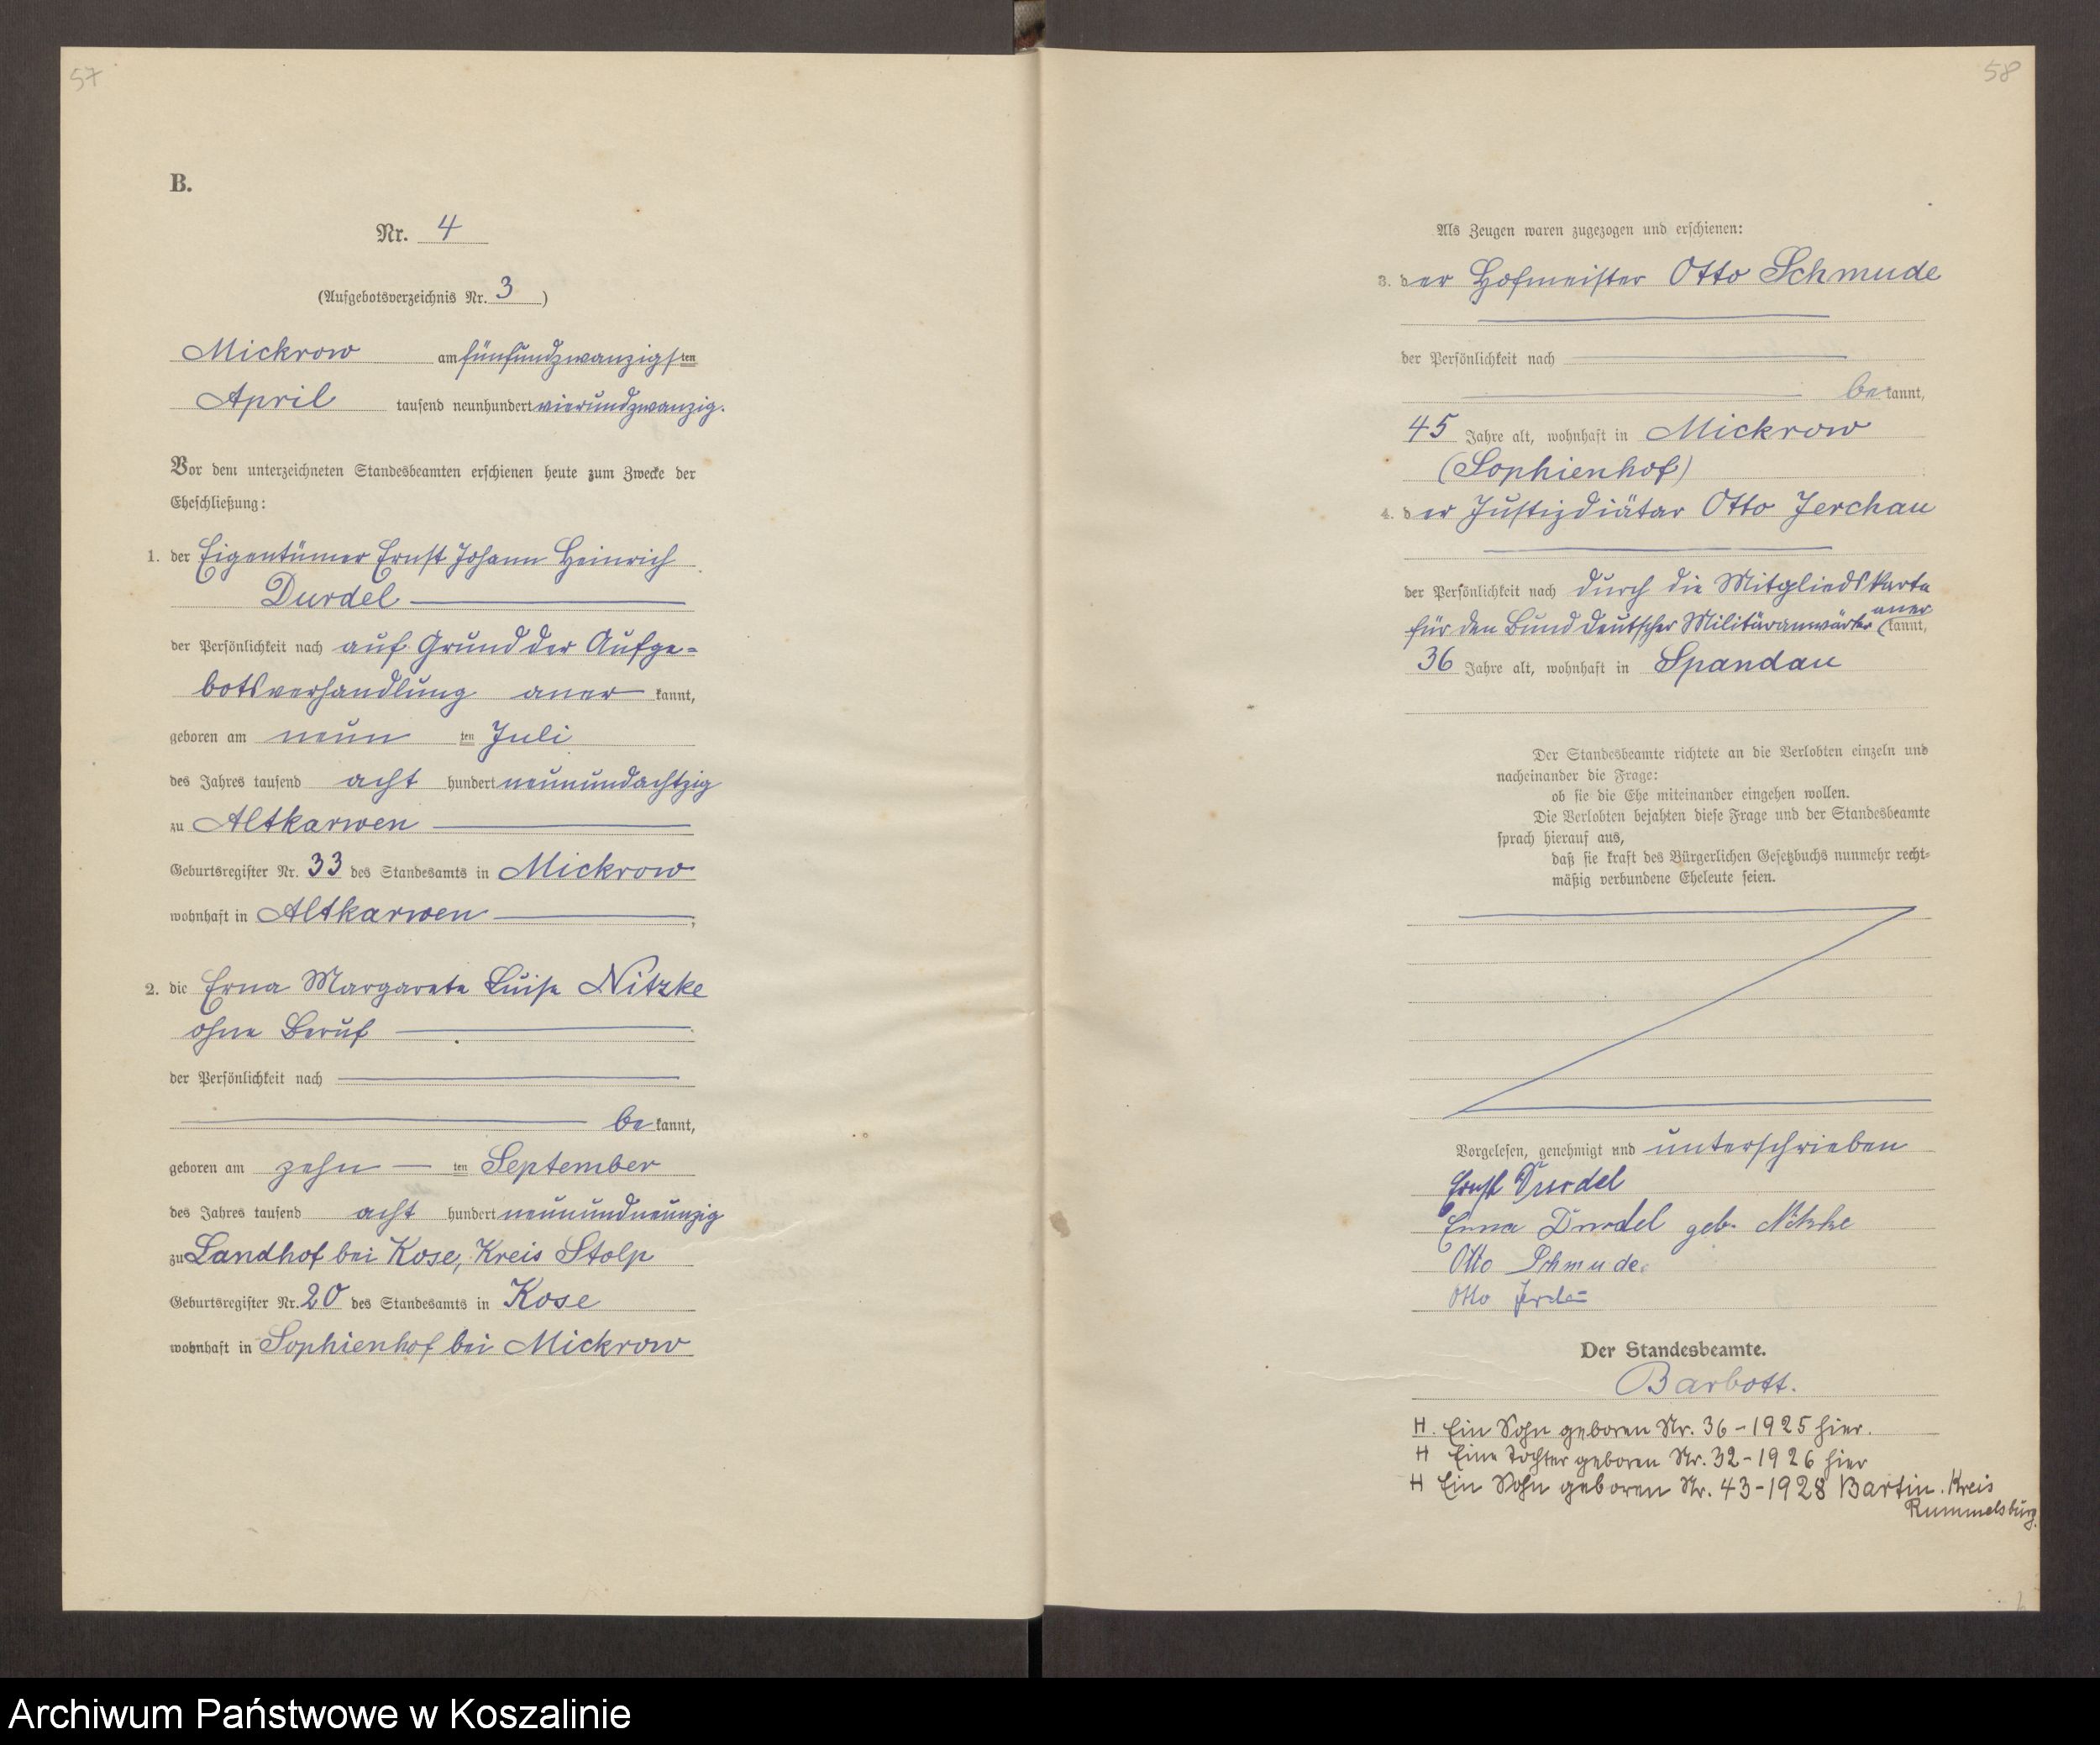 57
B.
Nr. 4
(Aufgebotsverzeichnis Nr. 3)
Mickrow am fünfundzwanzigsten
April tausend neunhundert vierundzwanzig.
Vor dem unterzeichneten Standesbeamten erschienen heute zum Zwecke der
Eheschließung:
1. der Eigentümer Ernst Johann Heinrich
Durdel
der Persönlichkeit nach auf Grund der Aufge=
botsverhandlung anerkannt,
geboren am neunten Juli
des Jahres tausend achthundert neunundachtzig
zu Altkarwen
Geburtsregister Nr. 33 des Standesamts in Mickrow
wohnhaft in Altkarwen;
2. die Erna Margarete Luise Nitzke
ohne Beruf
der Persönlichkeit nach
bekannt,
geboren am zehnten September
des Jahres tausend achthundert neunundneunzig
zu Landhof bei Kose, Kreis Stolp
Geburtsregister Nr. 20 des Standesamts in Kose
wohnhaft in Sophienhof bei Mickrow
58
Als Zeugen waren zugezogen und erschienen:
3. der Hofmeister Otto Schmude
der Persönlichkeit nach
bekannt,
45 Jahre alt, wohnhaft in Mickrow
(Sophienhof)
4. der Justizdiätar Otto Jerchau
der Persönlichkeit nach durch die Mitgliedskarte
für den Bund deutscher Militäranwärter anerkannt,
36 Jahre alt, wohnhaft in Spandau
Der Standesbeamte richtete an die Verlobten einzeln und
nacheinander die Frage:
ob sie die Ehe miteinander eingehen wollen.
Die Verlobten bejahten diese Frage und der Standesbeamte
sprach hierauf aus,
daß sie kraft des Bürgerlichen Gesetzbuchs nunmehr recht-
mäßig verbundene Eheleute seien.
Vorgelesen, genehmigt und unterschrieben
Ernst Durdel
Erna Durdel geb. Nitzke
Otto Schmude.
Otto Jerchau
Der Standesbeamte.
Barbott.
H. Ein Sohn geboren Nr. 36-1925 hier.
H Eine Tochter geboren Nr. 32-1926 hier
H Ein Sohn geboren Nr. 43-1928 Bartin. Kreis
Rummelsburg.
Archiwum Państwowe w Koszalinie